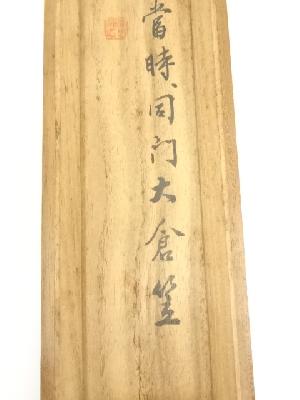 當時、同门大倉笠